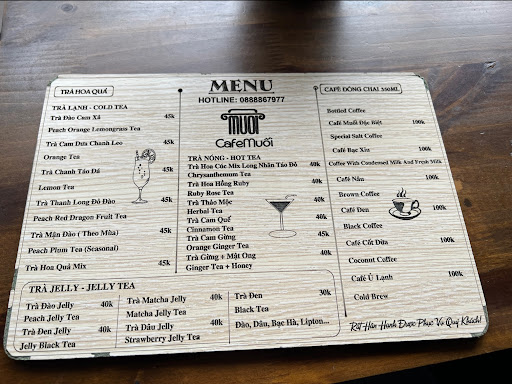 MENU
HOTLINE: 0888867977
MUOI
CafeMuối
TRÀ HOA QUẢ
TRÀ LẠNH - COLD TEA
Trà Đào Cam Xả 45k
Peach Orange Lemongrass Tea
Trà Cam Dưa Chanh Leo 45k
Orange Tea
Trà Chanh Táo Đá 45k
Lemon Tea
Trà Thanh Long Đỏ Đào 45k
Peach Red Dragon Fruit Tea
Trà Mận Đào ( Theo Mùa) 45k
Peach Plum Tea (Seasonal)
Trà Hoa Quả Mix 45k
TRÀ NÓNG - HOT TEA
Trà Hoa Cúc Mix Long Nhãn Táo Đỏ 40k
Chrysanthemum Tea
Trà Hoa Hồng Ruby 40k
Ruby Rose Tea
Trà Thảo Mộc 40k
Herbal Tea
Trà Cam Quế 40k
Cinnamon Tea
Trà Cam Gừng 45k
Orange Ginger Tea
Trà Gừng + Mật Ong 40k
Ginger Tea + Honey
CAFÉ ĐÓNG CHAI 330ML
Bottled Coffee
Café Muối Đặc Biệt 100k
Special Salt Coffee
Café Bạc Xỉu 100k
Coffee With Condensed Milk And Fresh Milk
Café Nâu 100k
Brown Coffee
Café Đen 100k
Black Coffee
Café Cốt Dừa 100k
Coconut Coffee
Café Ủ Lạnh 100k
Cold Brew
TRÀ JELLY - JELLY TEA
Trà Đào Jelly 40k
Peach Jelly Tea
Trà Đen Jelly 40k
Jelly Black Tea
Trà Matcha Jelly 40k
Matcha Jelly Tea
Trà Dâu Jelly 40k
Strawberry Jelly Tea
Trà Đen 30k
Black Tea
Đào, Dâu, Bạc Hà, Lipton...
Rất Hân Hạnh Được Phục Vụ Quý Khách!